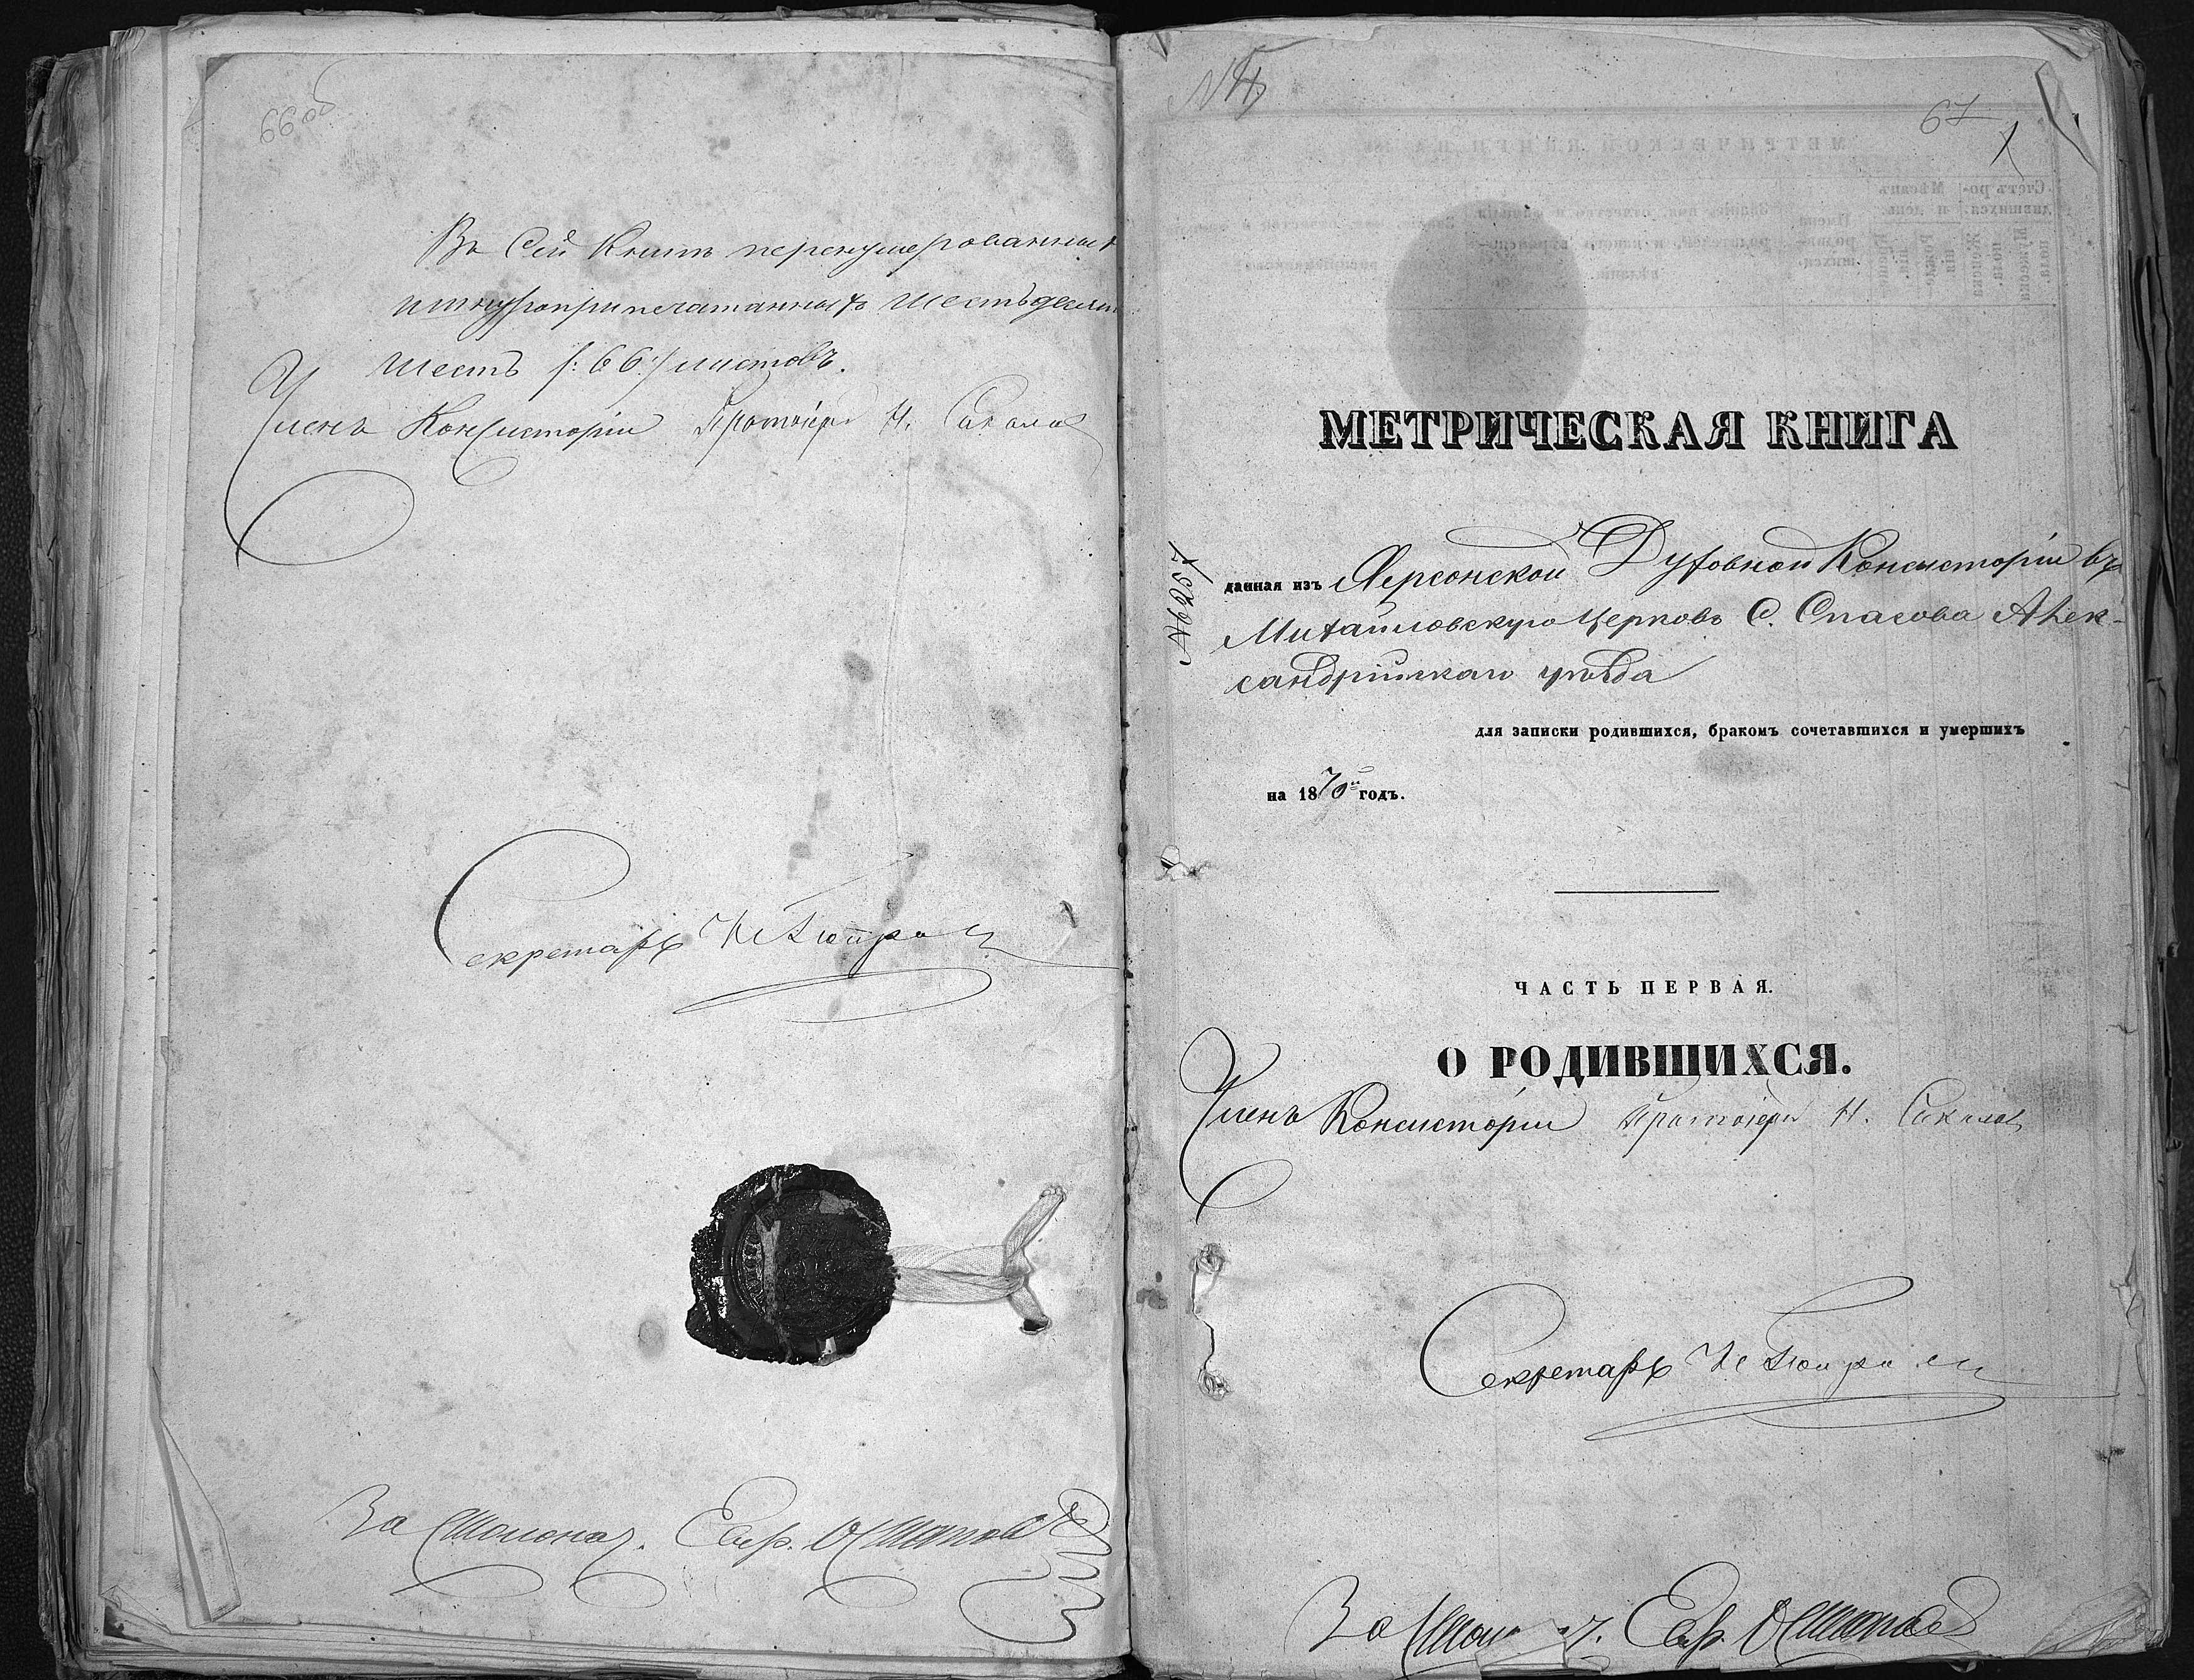 66 об
Въ Сей Книгѣ перенумерованныхъ
и шнуроприпечатанныхъ шестьдесятъ
шесть /: 66 :/ листовъ.
Членъ Консисторіи Протоіерей Н. Соколов
Секретарь
За Столонач. Евгр.
67
1
МЕТРИЧЕСКАЯ КНИГА
№6257
данная изъ Херсонской Духовной Консисторіи въ
Михайловскую Церковь С. Спасова Алек-
сандрійскаго уѣзда
для записки родившихся, бракомъ сочетавшихся и умершихъ
на 1870й годъ.
ЧАСТЬ ПЕРВАЯ.
О РОДИВШИХСЯ.
Членъ Консисторіи Протоіерей Н. Соколов
Секретарь
За